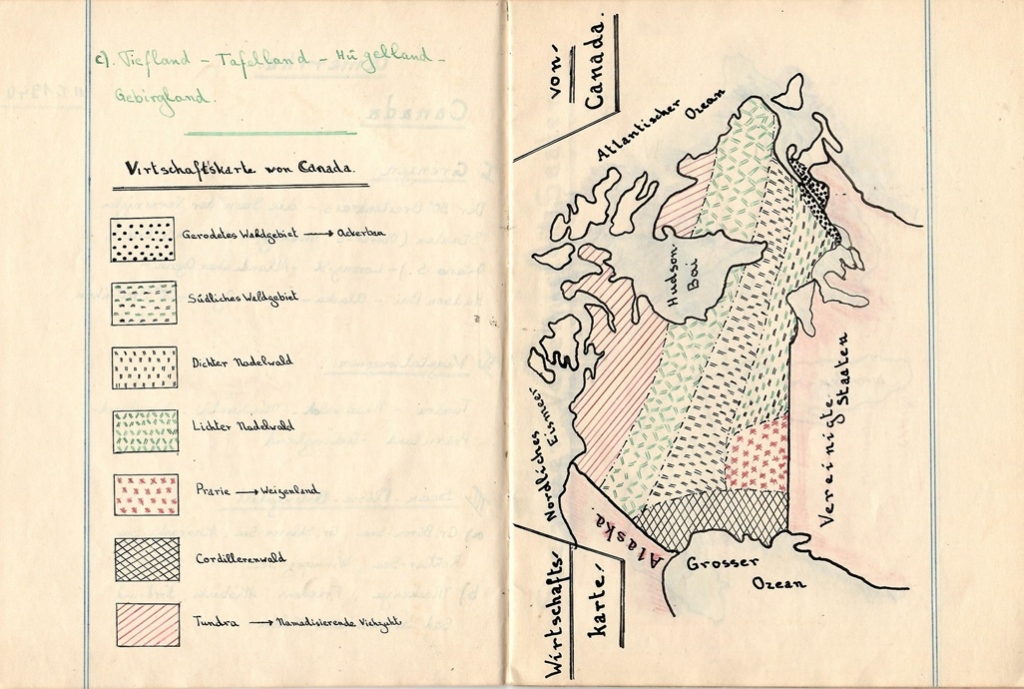 c). Tiefland - Tafelland - Hügelland -
Gebirgland.
Wirtschaftskarte von Canada.
Gerodetes Waldgebiet → Ackerbau
Südliches Waldgebiet
Dichter Nadelwald
Lichter Nadelwald
Prärie → Weizenland
Cordillerenwald
Tundra → Namadisierende Viehzucht
Wirtschafts-
karte
von
Canada.
Atlantischer Ozean
Hudson
Bai
Nordliches
Eismeer
Alaska.
Vereinigte
Staaten
Grosser
Ozean